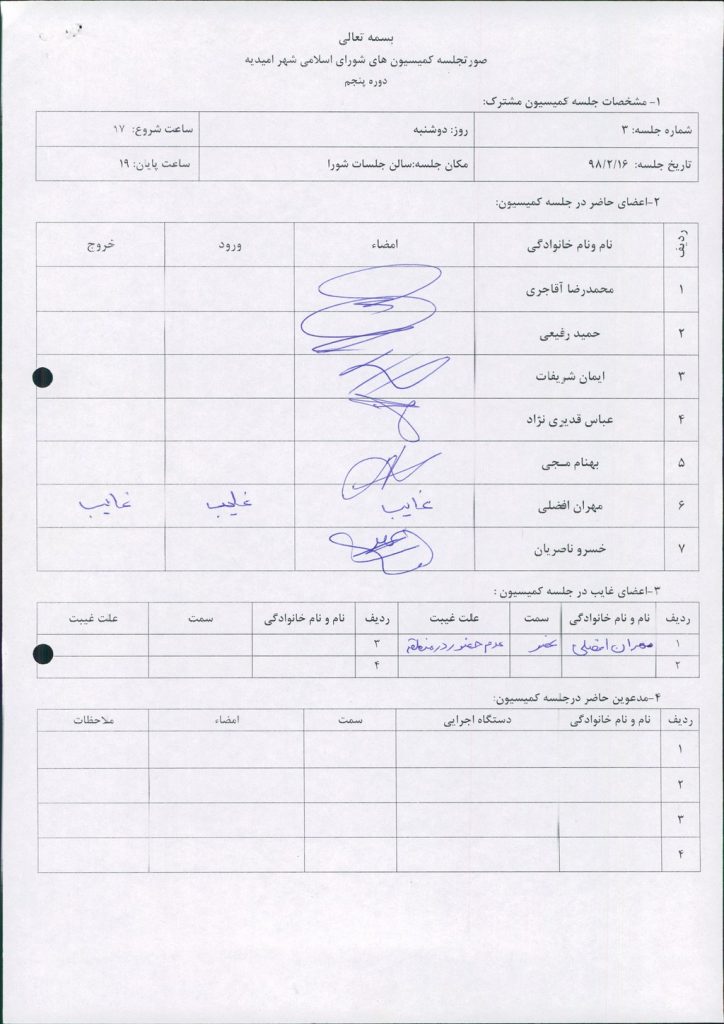 بسمه تعالی
صورتجلسه کمیسیون های شورای اسلامی شهر امیدیه
دوره پنجم
۱- مشخصات جلسه کمیسیون مشترک:
شماره جلسه: ۳ روز: دوشنبه ساعت شروع: ۱۷
تاریخ جلسه: ۹۸/۲/۱۶ مکان جلسه:سالن جلسات شورا ساعت پایان: ۱۹
۲-اعضای حاضر در جلسه کمیسیون:
ردیف نام ونام خانوادگی امضاء ورود خروج
۱ محمدرضا آقاجری
۲ حمید رفیعی
۳ ایمان شریفات
۴ عباس قدیری نژاد
۵ بهنام
۶ مهران افضلی غایب غایب غایب
۷ خسرو ناصریان
۳-اعضای غایب در جلسه کمیسیون :
ردیف نام و نام خانوادگی سمت علت غیبت ردیف نام و نام خانوادگی سمت علت غیبت
۱ مهران افضلی عضو عدم حضور در منطقه ۳
۲ ۴
۴-مدعوین حاضر درجلسه کمیسیون:
ردیف نام و نام خانوادگی دستگاه اجرایی سمت امضاء ملاحظات
۱
۲
۳
۴